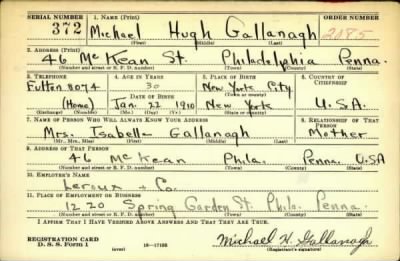 SERIAL NUMBER 1. NAME (Print) ORDER NUMBER
372 Michael Hugh Gallanagh 2185
(First) (Middle) (Last)
2. ADDRESS (Print)
46 McKean St. Philadelphia Penna.
(Number and street or R. F. D. number) (Town) (County) (State)
3. TELEPHONE 4. AGE IN YEARS 5. PLACE OF BIRTH 6. COUNTRY OF CITIZENSHIP
Fulton 8074 30 New York City
DATE OF BIRTH (Town or county)
(Home) Jan. 22 1910 New York U.S.A.
(Exchange) (Number) (Mo.) (Day) (Yr.) (State or country)
7. NAME OF PERSON WHO WILL ALWAYS KNOW YOUR ADDRESS 8. RELATIONSHIP OF THAT PERSON
Mrs. Isabella Gallanagh Mother
(Mr., Mrs., Miss) (First) (Middle) (Last)
9. ADDRESS OF THAT PERSON
46 McKean Phila. Penna. USA
(Number and street or R. F. D. number) (Town) (County) (State)
10. EMPLOYER'S NAME
Leroux & Co.
11. PLACE OF EMPLOYMENT OR BUSINESS
1220 Spring Garden St. Phila. Penna.
(Number and street or R. F. D. number) (Town) (County) (State)
I AFFIRM THAT I HAVE VERIFIED ABOVE ANSWERS AND THAT THEY ARE TRUE.
REGISTRATION CARD
D. S. S. Form 1 (over) 16—17105 Michael H. Gallanagh
(Registrant's signature)